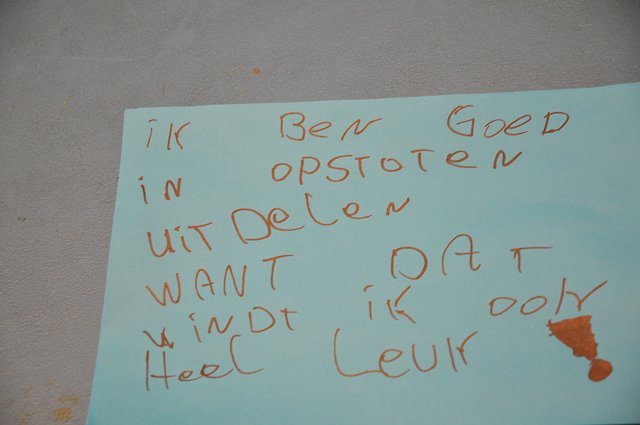 iK BeN GoeD
iN OPSTOTeN
UiT DeLeN
WANT DAT
viNDt iK OOk
HeeL LeUk